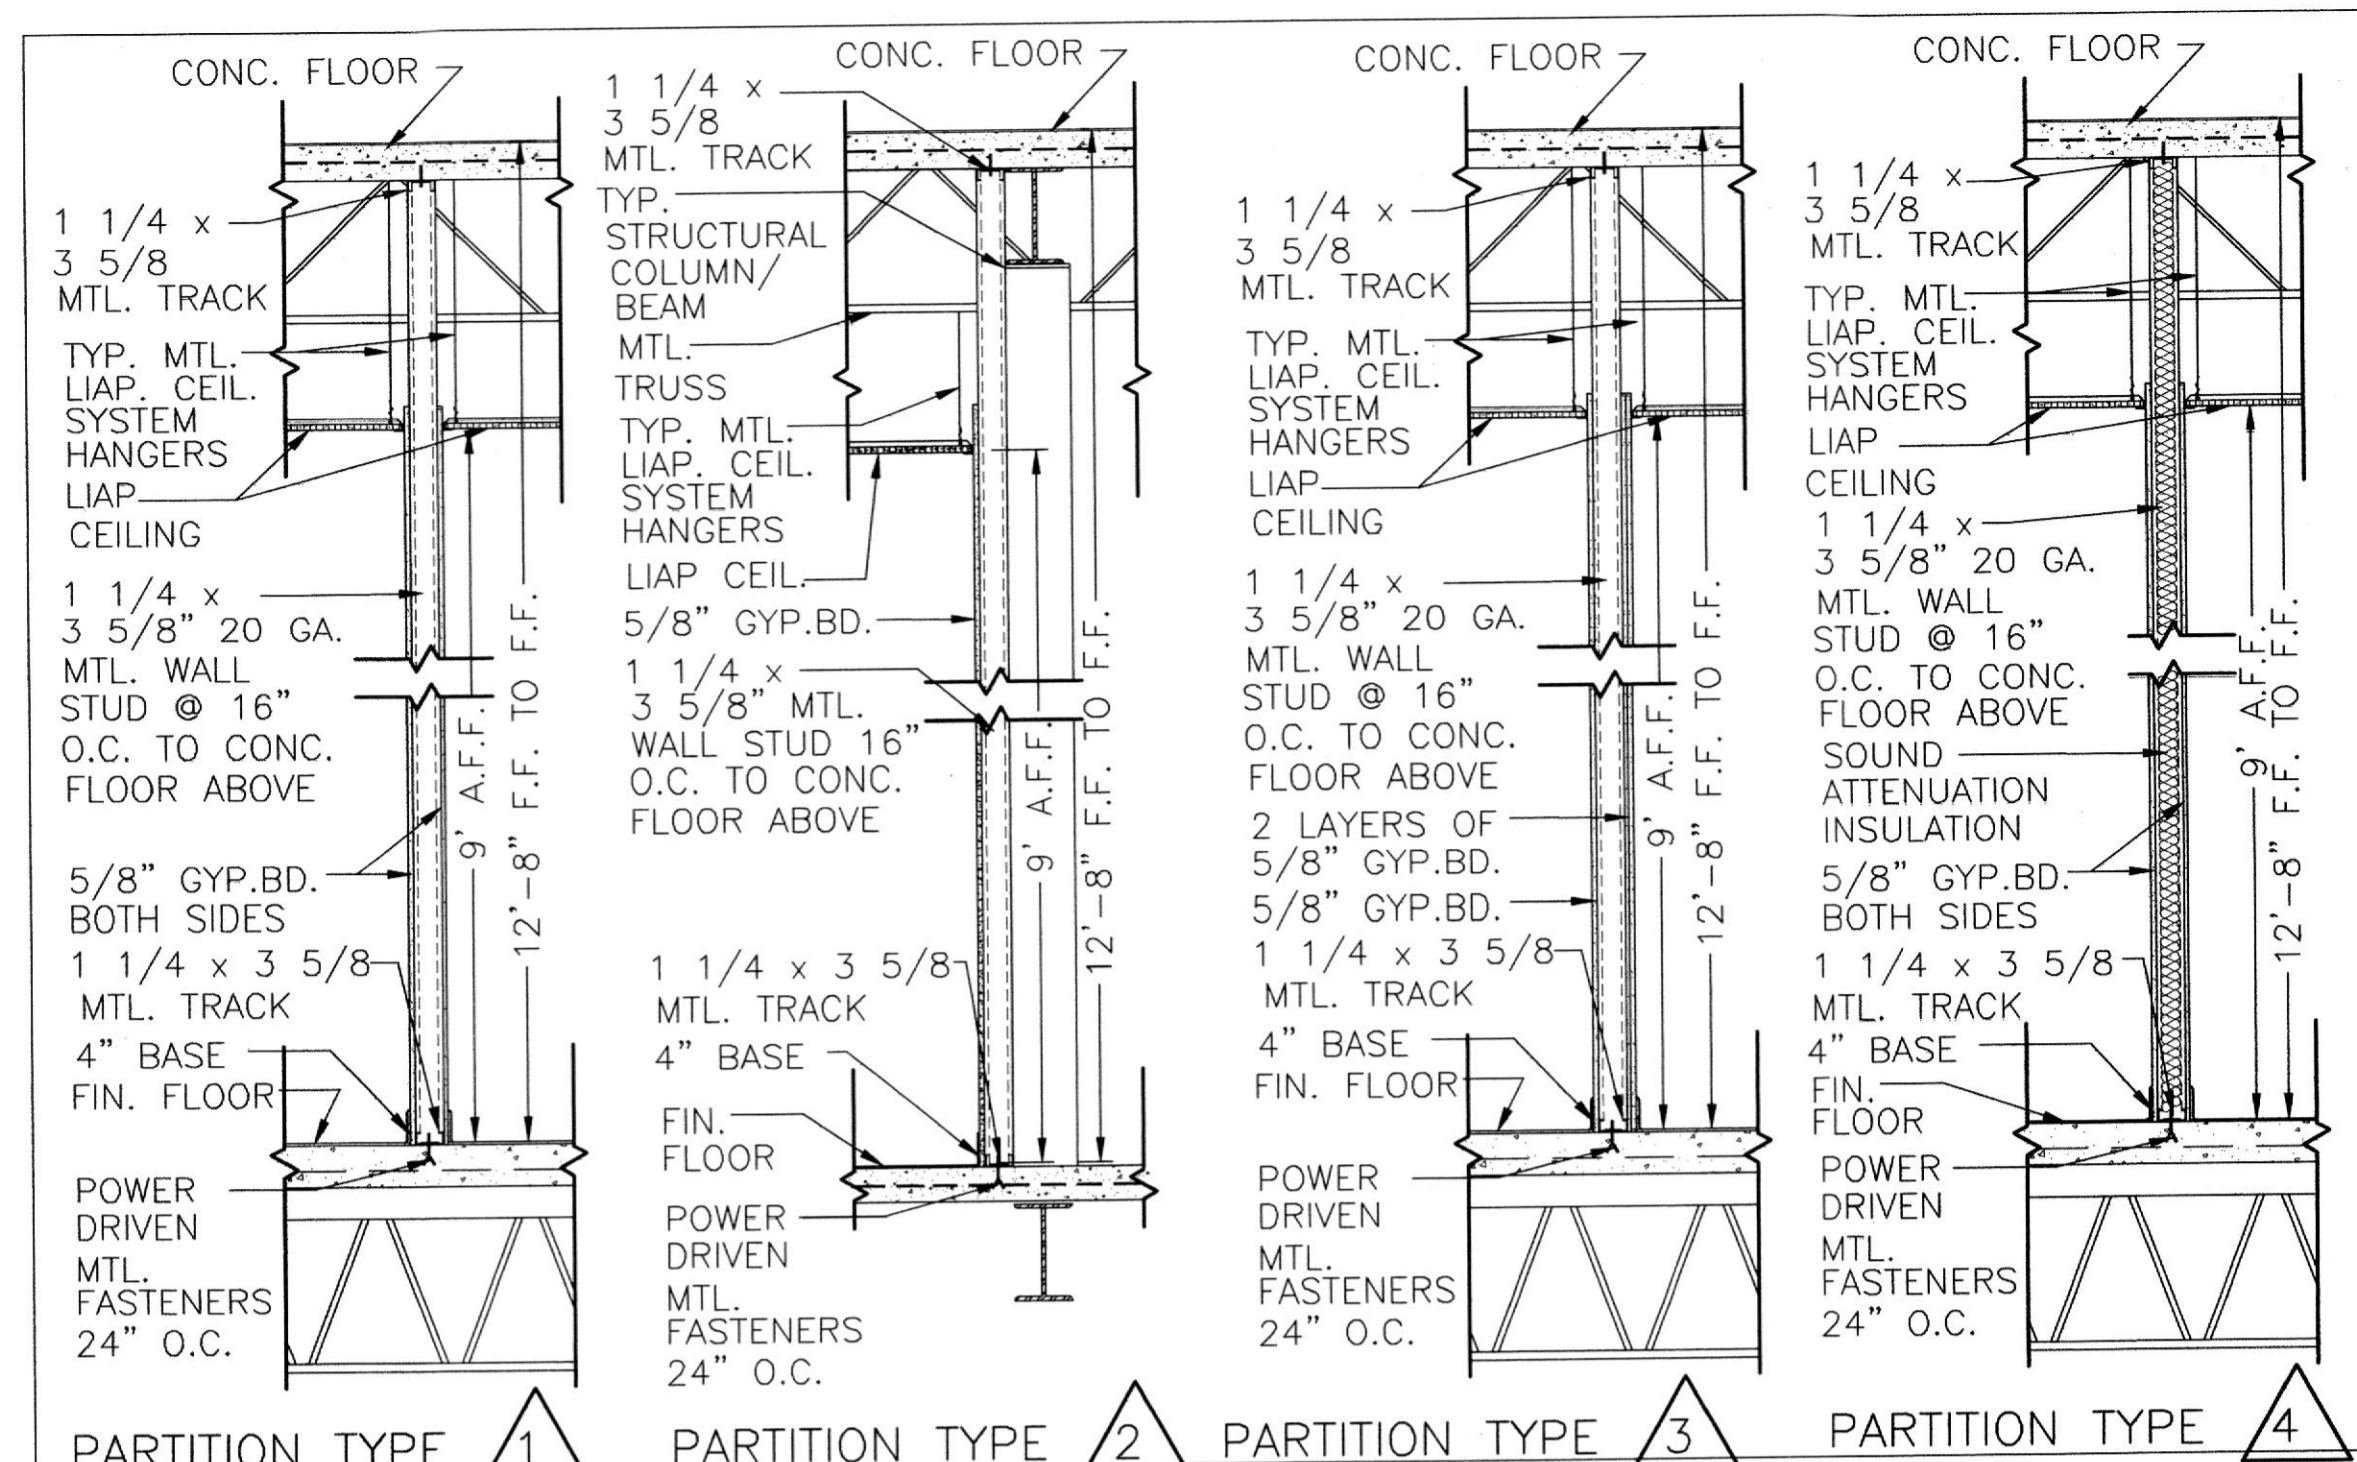 CONC. FLOOR
1 1/4 x
3 5/8
MTL. TRACK
TYP. MTL.
LIAP. CEIL.
SYSTEM
HANGERS
LIAP
CEILING
1 1/4 x
3 5/8" 20 GA.
MTL. WALL
STUD @ 16"
O.C. TO CONC.
FLOOR ABOVE
5/8" GYP.BD.
BOTH SIDES
1 1/4 x 3 5/8
MTL. TRACK
4" BASE
FIN. FLOOR
POWER
DRIVEN
MTL.
FASTENERS
24" O.C.
9' A.F.F.
12'-8" F.F. TO F.F.
PARTITION TYPE 1
CONC. FLOOR
1 1/4 x
3 5/8
MTL. TRACK
TYP.
STRUCTURAL
COLUMN/
BEAM
MTL.
TRUSS
TYP. MTL.
LIAP. CEIL.
SYSTEM
HANGERS
LIAP CEIL.
5/8" GYP.BD.
1 1/4 x
3 5/8" MTL.
WALL STUD 16"
O.C. TO CONC.
FLOOR ABOVE
1 1/4 x 3 5/8
MTL. TRACK
4" BASE
FIN.
FLOOR
POWER
DRIVEN
MTL.
FASTENERS
24" O.C.
9' A.F.F.
12'-8" F.F. TO F.F.
PARTITION TYPE 2
CONC. FLOOR
1 1/4 x
3 5/8
MTL. TRACK
TYP. MTL.
LIAP. CEIL.
SYSTEM
HANGERS
LIAP
CEILING
1 1/4 x
3 5/8" 20 GA.
MTL. WALL
STUD @ 16"
O.C. TO CONC.
FLOOR ABOVE
2 LAYERS OF
5/8" GYP.BD.
5/8" GYP.BD.
1 1/4 x 3 5/8
MTL. TRACK
4" BASE
FIN. FLOOR
POWER
DRIVEN
MTL.
FASTENERS
24" O.C.
9' A.F.F.
12'-8" F.F. TO F.F.
PARTITION TYPE 3
CONC. FLOOR
1 1/4 x
3 5/8
MTL. TRACK
TYP. MTL.
LIAP. CEIL.
SYSTEM
HANGERS
LIAP
CEILING
1 1/4 x
3 5/8" 20 GA.
MTL. WALL
STUD @ 16"
O.C. TO CONC.
FLOOR ABOVE
SOUND
ATTENUATION
INSULATION
5/8" GYP.BD.
BOTH SIDES
1 1/4 x 3 5/8
MTL. TRACK
4" BASE
FIN.
FLOOR
POWER
DRIVEN
MTL.
FASTENERS
24" O.C.
9' A.F.F.
12'-8" F.F. TO F.F.
PARTITION TYPE 4